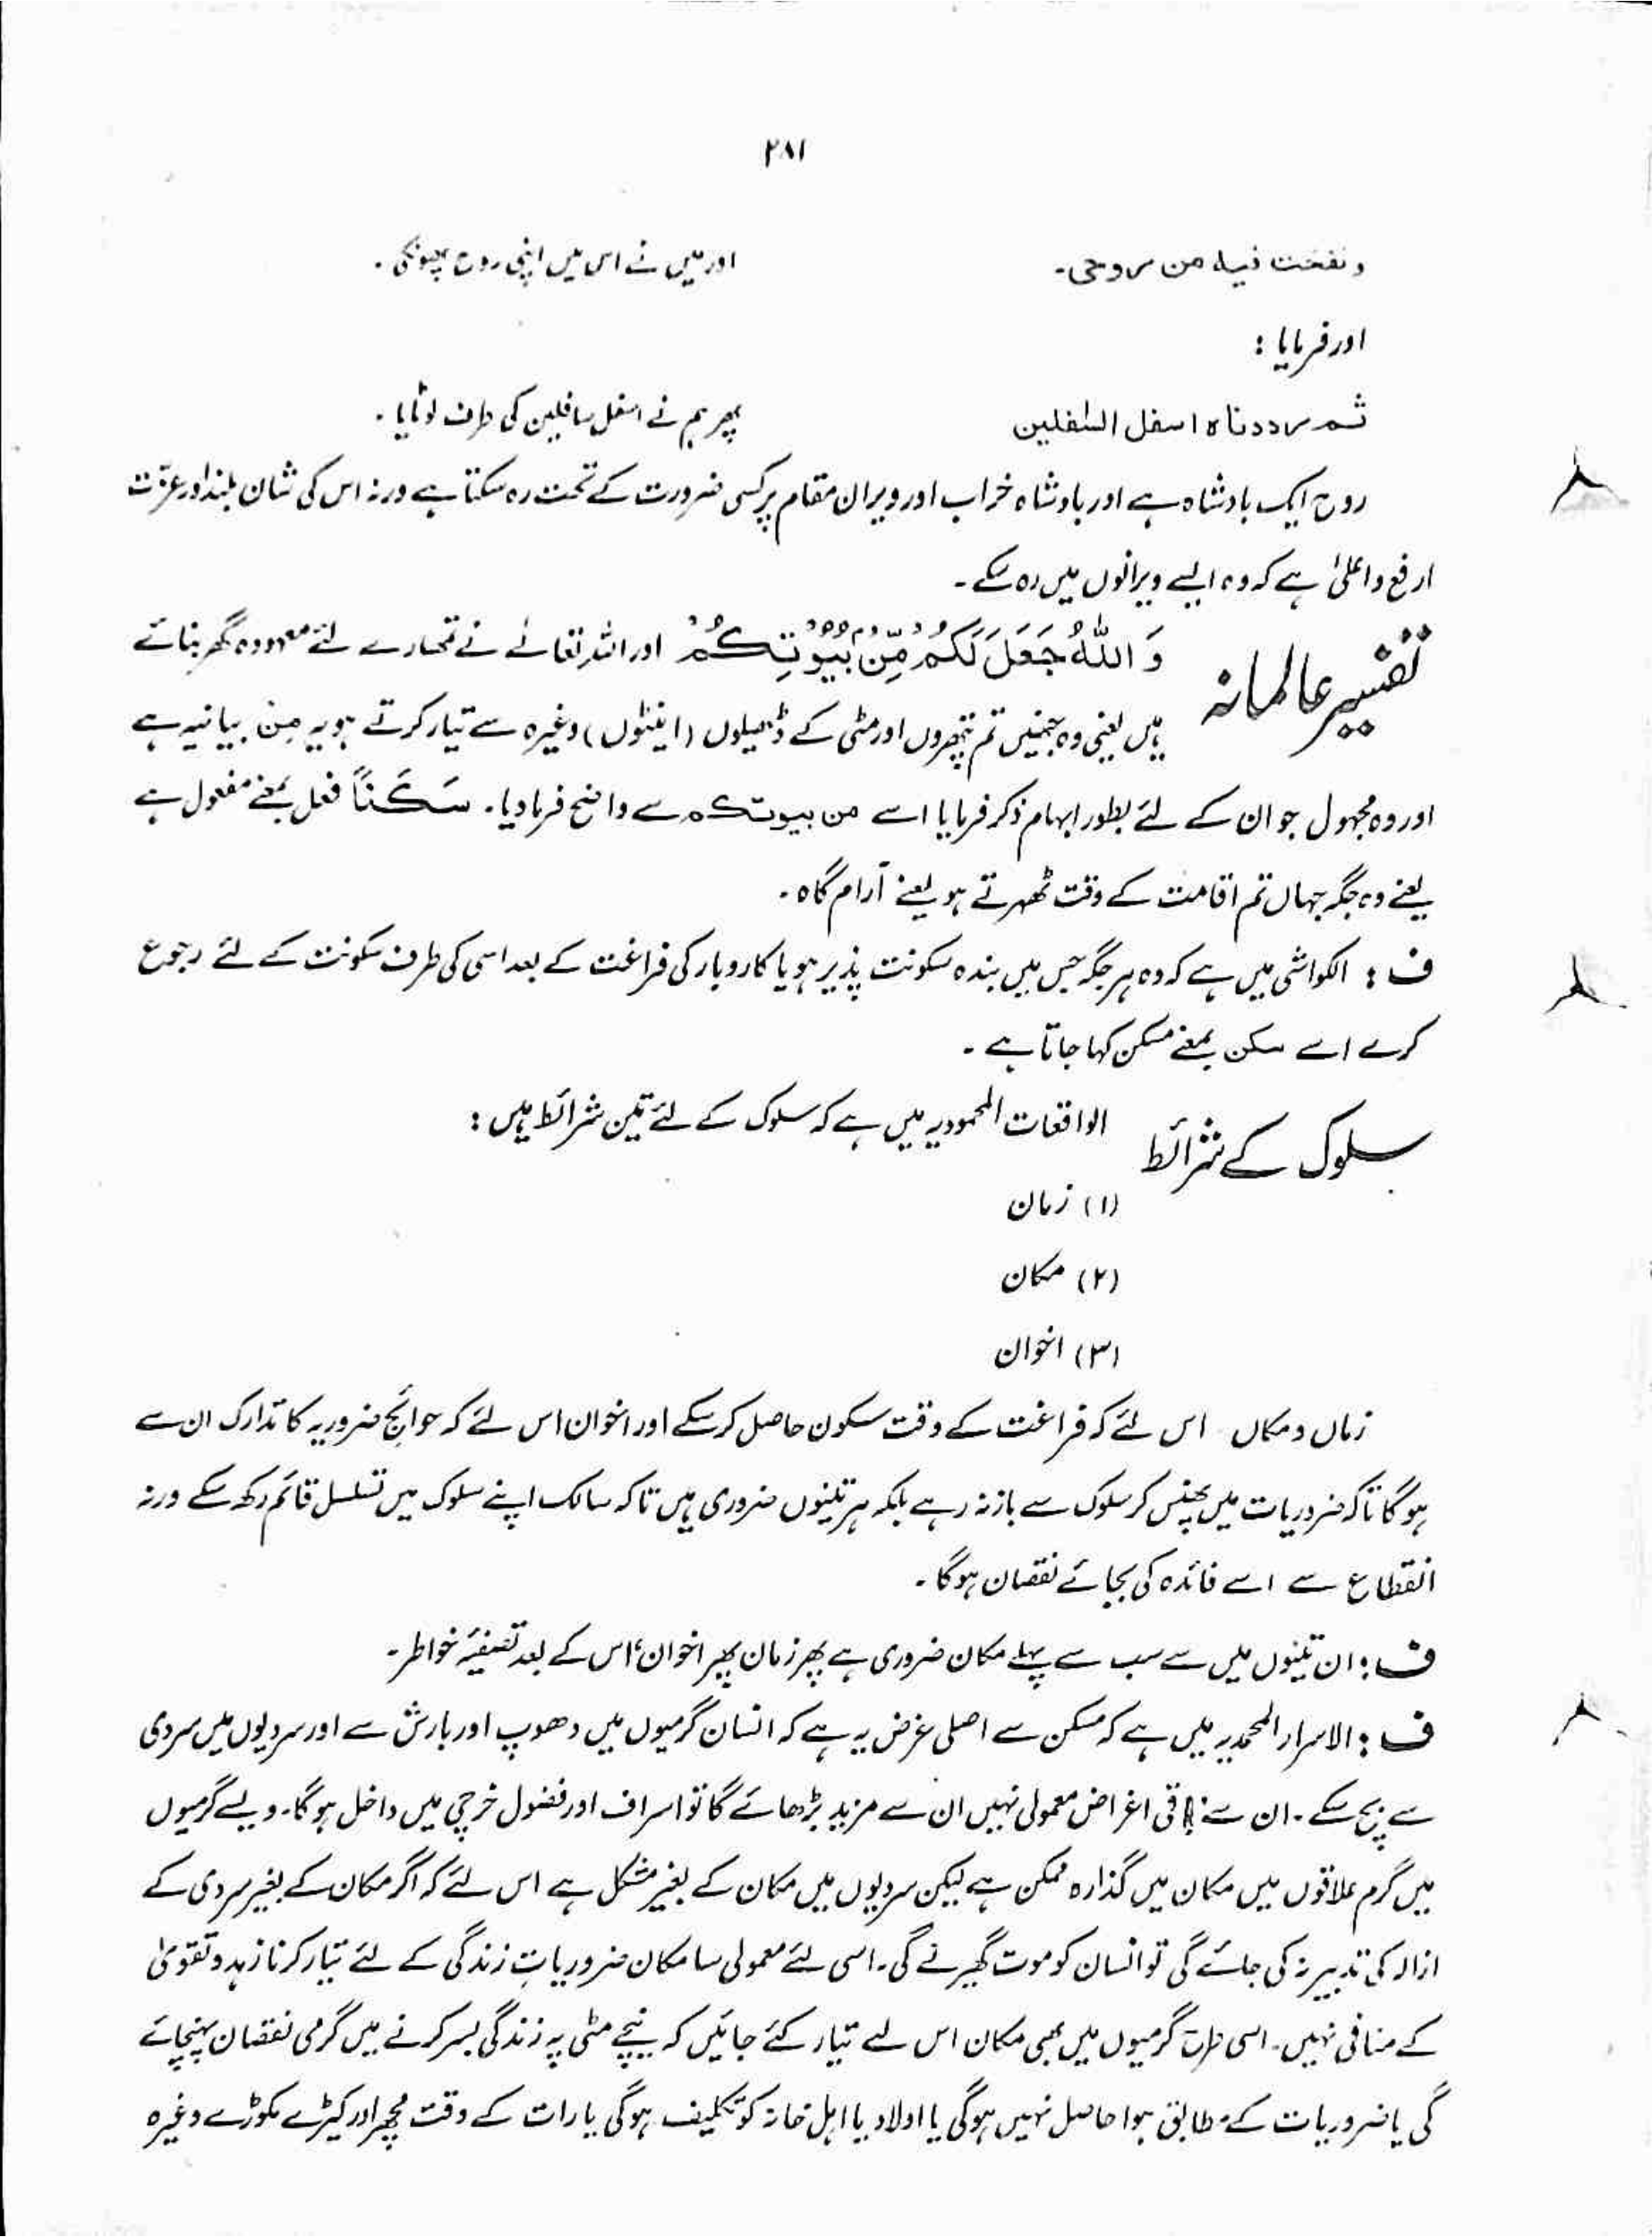 ۲۸۱
ونفخت فیہ من روحی۔ اور میں نے اس میں اپنی روح پھونکی۔
اور فرمایا :
ثم رددناہ اسفل السٰفلین پھر ہم نے اسفل سافلین کی طرف لوٹایا۔
روح ایک بادشاہ ہے اور بادشاہ خراب اور ویران مقام پر کسی ضرورت کے تحت رہ سکتا ہے ورنہ اس کی شان بلند اور عزّت
ارفع و اعلیٰ ہے کہ وہ ایسے ویرانوں میں رہ سکے۔
تفسیر عالمانہ وَ اللّٰهُ جَعَلَ لَكُمْ مِّنْۢ بُيُوْتِكُمْ اور اللہ تعالےٰ نے تمھارے لئے معہودہ گھر بنائے
ہیں یعنی وہ جنھیں تم پتھروں اور مٹی کے ڈھیلوں (اینٹوں) وغیرہ سے تیار کرتے ہو یہ مِن بیانیہ ہے
اور وہ مجہول جو ان کے لئے بطور ابہام ذکر فرمایا اسے من بیوتکم سے واضح فرمادیا۔ سَكَنًا فعل بمعنے مفعول ہے
یعنے وہ جگہ جہاں تم اقامت کے وقت ٹھہرتے ہو یعنے آرام گاہ۔
ف : الکواشی میں ہے کہ وہ ہر جگہ جس میں بندہ سکونت پذیر ہو یا کاروبار کی فراغت کے بعد اسی کی طرف سکونت کے لئے رجوع
کرے اسے سکن بمعنے مسکن کہا جاتا ہے۔
سلوک کے شرائط الواقعات المحمودیہ میں ہے کہ سلوک کے لئے تین شرائط ہیں :
(۱) زمان
(۲) مکان
(۳) اخوان
زماں و مکاں اس لئے کہ فراغت کے وقت سکون حاصل کرسکے اور اخوان اس لئے کہ حوائجِ ضروریہ کا تدارک ان سے
ہوگا تاکہ ضروریات میں پھنس کر سلوک سے باز نہ رہے بلکہ ہر تینوں ضروری ہیں تاکہ سالک اپنے سلوک میں تسلسل قائم رکھ سکے ورنہ
انقطاع سے اسے فائدہ کی بجائے نقصان ہوگا۔
ف : ان تینوں میں سے سب سے پہلے مکان ضروری ہے پھر زمان پھر اخوان، اس کے بعد تصفیۂ خواطر۔
ف : الاسرار المحمدیہ میں ہے کہ مسکن سے اصلی غرض یہ ہے کہ انسان گرمیوں میں دھوپ اور بارش سے اور سردیوں میں سردی
سے بچ سکے۔ ان سے باقی اغراض معمولی نہیں ان سے مزید بڑھائے گا تو اسراف اور فضول خرچی میں داخل ہوگا۔ ویسے گرمیوں
میں گرم علاقوں میں مکان میں گذارہ ممکن ہے لیکن سردیوں میں مکان کے بغیر مشکل ہے اس لئے کہ اگر مکان کے بغیر سردی کے
ازالہ کی تدبیر نہ کی جائے گی تو انسان کو موت گھیر لے گی۔ اسی لئے معمولی سا مکان ضروریاتِ زندگی کے لئے تیار کرنا زہد و تقویٰ
کے منافی نہیں۔ اسی طرح گرمیوں میں بھی مکان اس لیے تیار کئے جائیں کہ نیچے مٹی پہ زندگی بسر کرنے میں گرمی نقصان پہنچائے
گی یا ضروریات کے مطابق ہوا حاصل نہیں ہوگی یا اولاد یا اہل خانہ کو تکلیف ہوگی یا رات کے وقت مچھر اور کیڑے مکوڑے وغیرہ